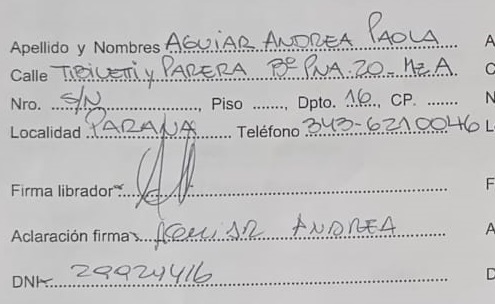 Apellido y Nombres AGUIAR ANDREA PAOLA
Calle TIBILETTI y PARERA Bº PNA. 20 - Mz A.
Nro. S/N, Piso ......., Dpto. 16, CP. .......
Localidad PARANA Teléfono 343-6210046
Firma librador
Aclaración firma AGUIAR ANDREA
DNI 29924416